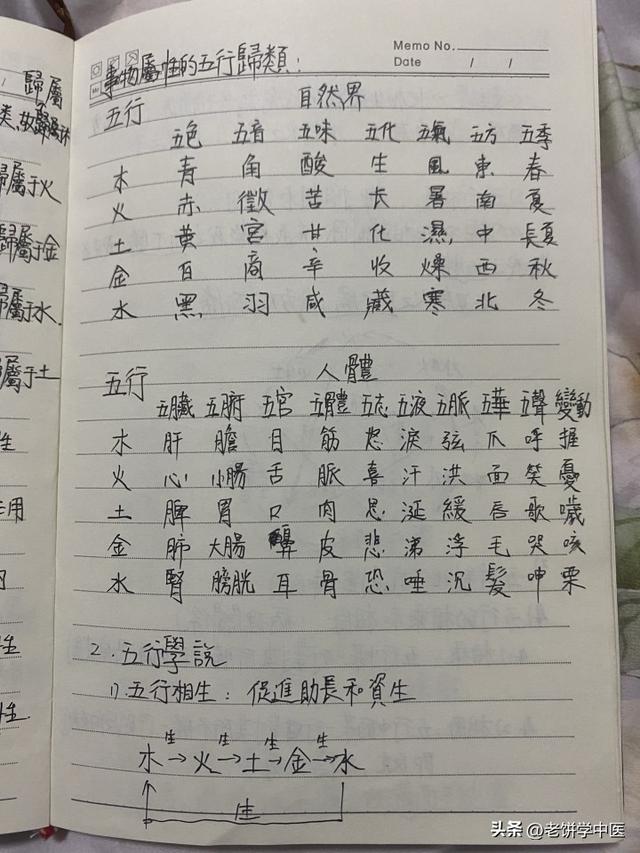 歸屬
歸屬于火
歸屬于金
歸屬于水.
屬于土
性
用
性
性.
Memo No.
Date / /
事物屬性的五行歸類:
五行 自然界
五色 五音 五味 五化 五氣 五方 五季
木 青 角 酸 生 風 東 春
火 赤 徵 苦 长 暑 南 夏
土 黄 宮 甘 化 濕 中 長夏
金 白 商 辛 收 燥 西 秋
水 黑 羽 咸 藏 寒 北 冬
五行 人體
五臟 五腑 五官 五體 五志 五液 五脈 五華 五聲 變動
水 肝 膽 目 筋 怒 淚 弦 爪 呼 握
火 心 小腸 舌 脈 喜 汗 洪 面 笑 憂
土 脾 胃 口 肉 思 涎 緩 唇 歌 噦
金 肺 大腸 鼻 皮 悲 涕 浮 毛 哭 咳
水 腎 膀胱 耳 骨 恐 唾 沉 髮 呻 栗
2.五行學說
1).五行相生: 促進助長和資生
生 生 生 生
木→火→土→金→水
生
头条 @老饼学中医